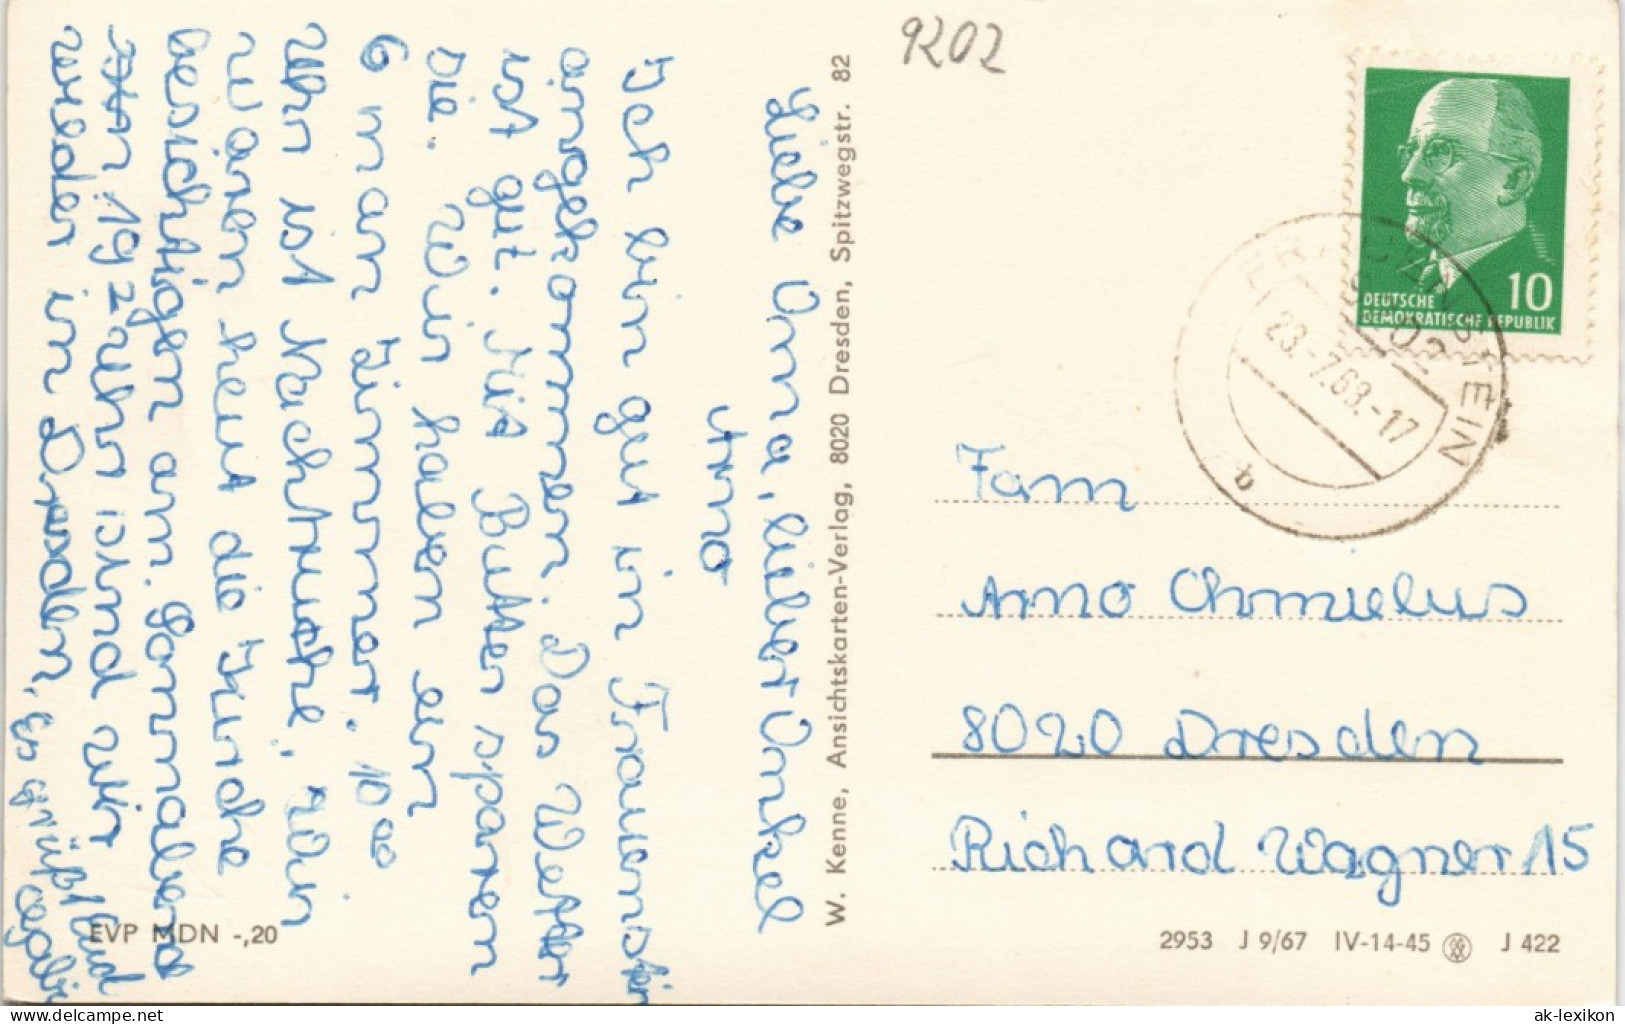 9202
Liebe Oma, lieber Onkel
Arno
Ich bin gut in Frauenstein
angekommen. Das Wetter
ist gut. Mit Butter sparen
die. Wir haben ein
6 man Zimmer. 10 00
Uhr ist Nachtruhe. Wir
waren heut die Kirche
besichtigen am. Sonnabend
19 Uhr sind wir
wieder in Dresden, Es grüßt Euch
W. Kenne, Ansichtskarten-Verlag, 8020 Dresden, Spitzwegstr. 82
DEUTSCHE
DEMOKRATISCHE REPUBLIK
10
FRAUENSTEIN
9202
23.-7.68.-17
b
Fam
Arno Chmielus
8020 Dresden
Richard Wagner 15
EVP MDN -,20
2953 J 9/67 IV-14-45 J 422
ak-lexikon